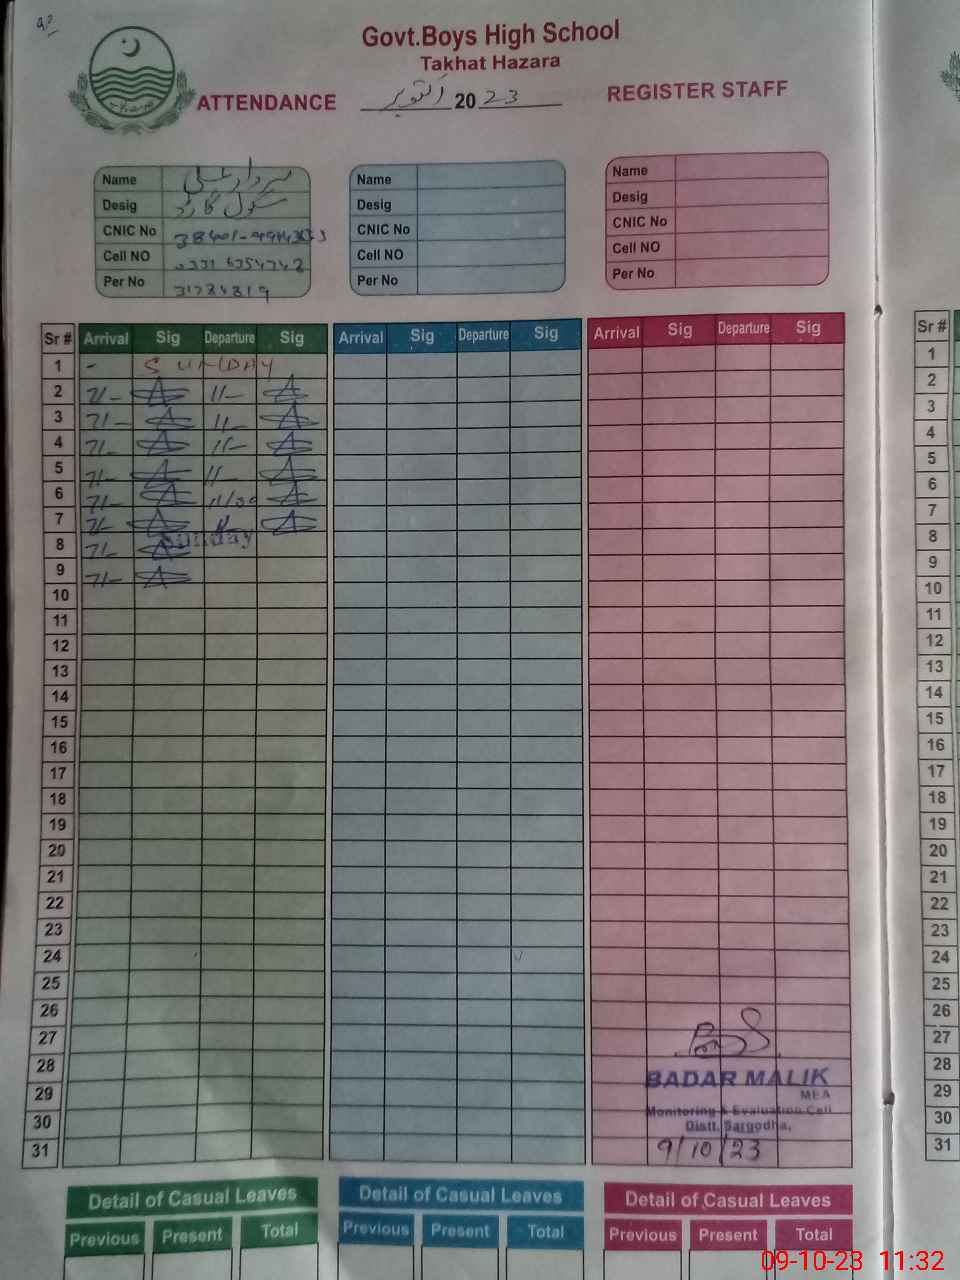 Govt.Boys High School
Takhat Hazara
ATTENDANCE اکتوبر 2023 REGISTER STAFF
Name سردار علی
Desig سکول گارڈ
CNIC No
Cell NO
Per No
Name
Desig
CNIC No
Cell NO
Per No
Name
Desig
CNIC No
Cell NO
Per No
Sr # Arrival Sig Departure Sig Arrival Sig Departure Sig Arrival Sig Departure Sig Sr #
1 - SUNDAY 1
2 7/- 11/- 2
3 7/- 11/- 3
4 7/- 11/- 4
5 7/- 11/- 5
6 7/- 11/00 6
7 7/- 7
Sunday
8 7/- 8
9 7/- 9
10 10
11 11
12 12
13 13
14 14
15 15
16 16
17 17
18 18
19 19
20 20
21 21
22 22
23 23
24 24
25 25
26 26
27 27
28 28
29 29
30 30
31 31
BADAR MALIK
MEA
Monitoring & Evaluation Cell
Distt. Sargodha.
9/10/23
Detail of Casual Leaves Detail of Casual Leaves Detail of Casual Leaves
Previous Present Total Previous Present Total Previous Present Total
09-10-23 11:32